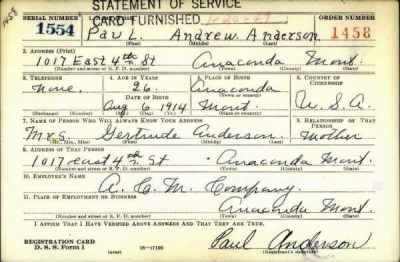 STATEMENT OF SERVICE
CARD FURNISHED 1-20-49
1458
SERIAL NUMBER 1. NAME (Print) ORDER NUMBER
1554 Paul Andrew Anderson 1458
(First) (Middle) (Last)
2. ADDRESS (Print)
1017 East 4th St Anaconda Mont.
(Number and street or R. F. D. number) (Town) (County) (State)
3. TELEPHONE 4. AGE IN YEARS 5. PLACE OF BIRTH 6. COUNTRY OF CITIZENSHIP
None. 26. Anaconda
DATE OF BIRTH (Town or county)
Aug 6 1914 Mont. U.S.A.
(Exchange) (Number) (Mo.) (Day) (Yr.) (State or country)
7. NAME OF PERSON WHO WILL ALWAYS KNOW YOUR ADDRESS 8. RELATIONSHIP OF THAT PERSON
Mrs. Gertrude Anderson. Mother
(Mr., Mrs., Miss) (First) (Middle) (Last)
9. ADDRESS OF THAT PERSON
1017 east 4th St Anaconda Mont.
(Number and street or R. F. D. number) (Town) (County) (State)
10. EMPLOYER'S NAME
A. C. M. Company.
11. PLACE OF EMPLOYMENT OR BUSINESS
Anaconda Mont.
(Number and street or R. F. D. number) (Town) (County) (State)
I AFFIRM THAT I HAVE VERIFIED ABOVE ANSWERS AND THAT THEY ARE TRUE.
REGISTRATION CARD
D. S. S. Form 1 (over) 16-17105 Paul Anderson
(Registrant's signature)